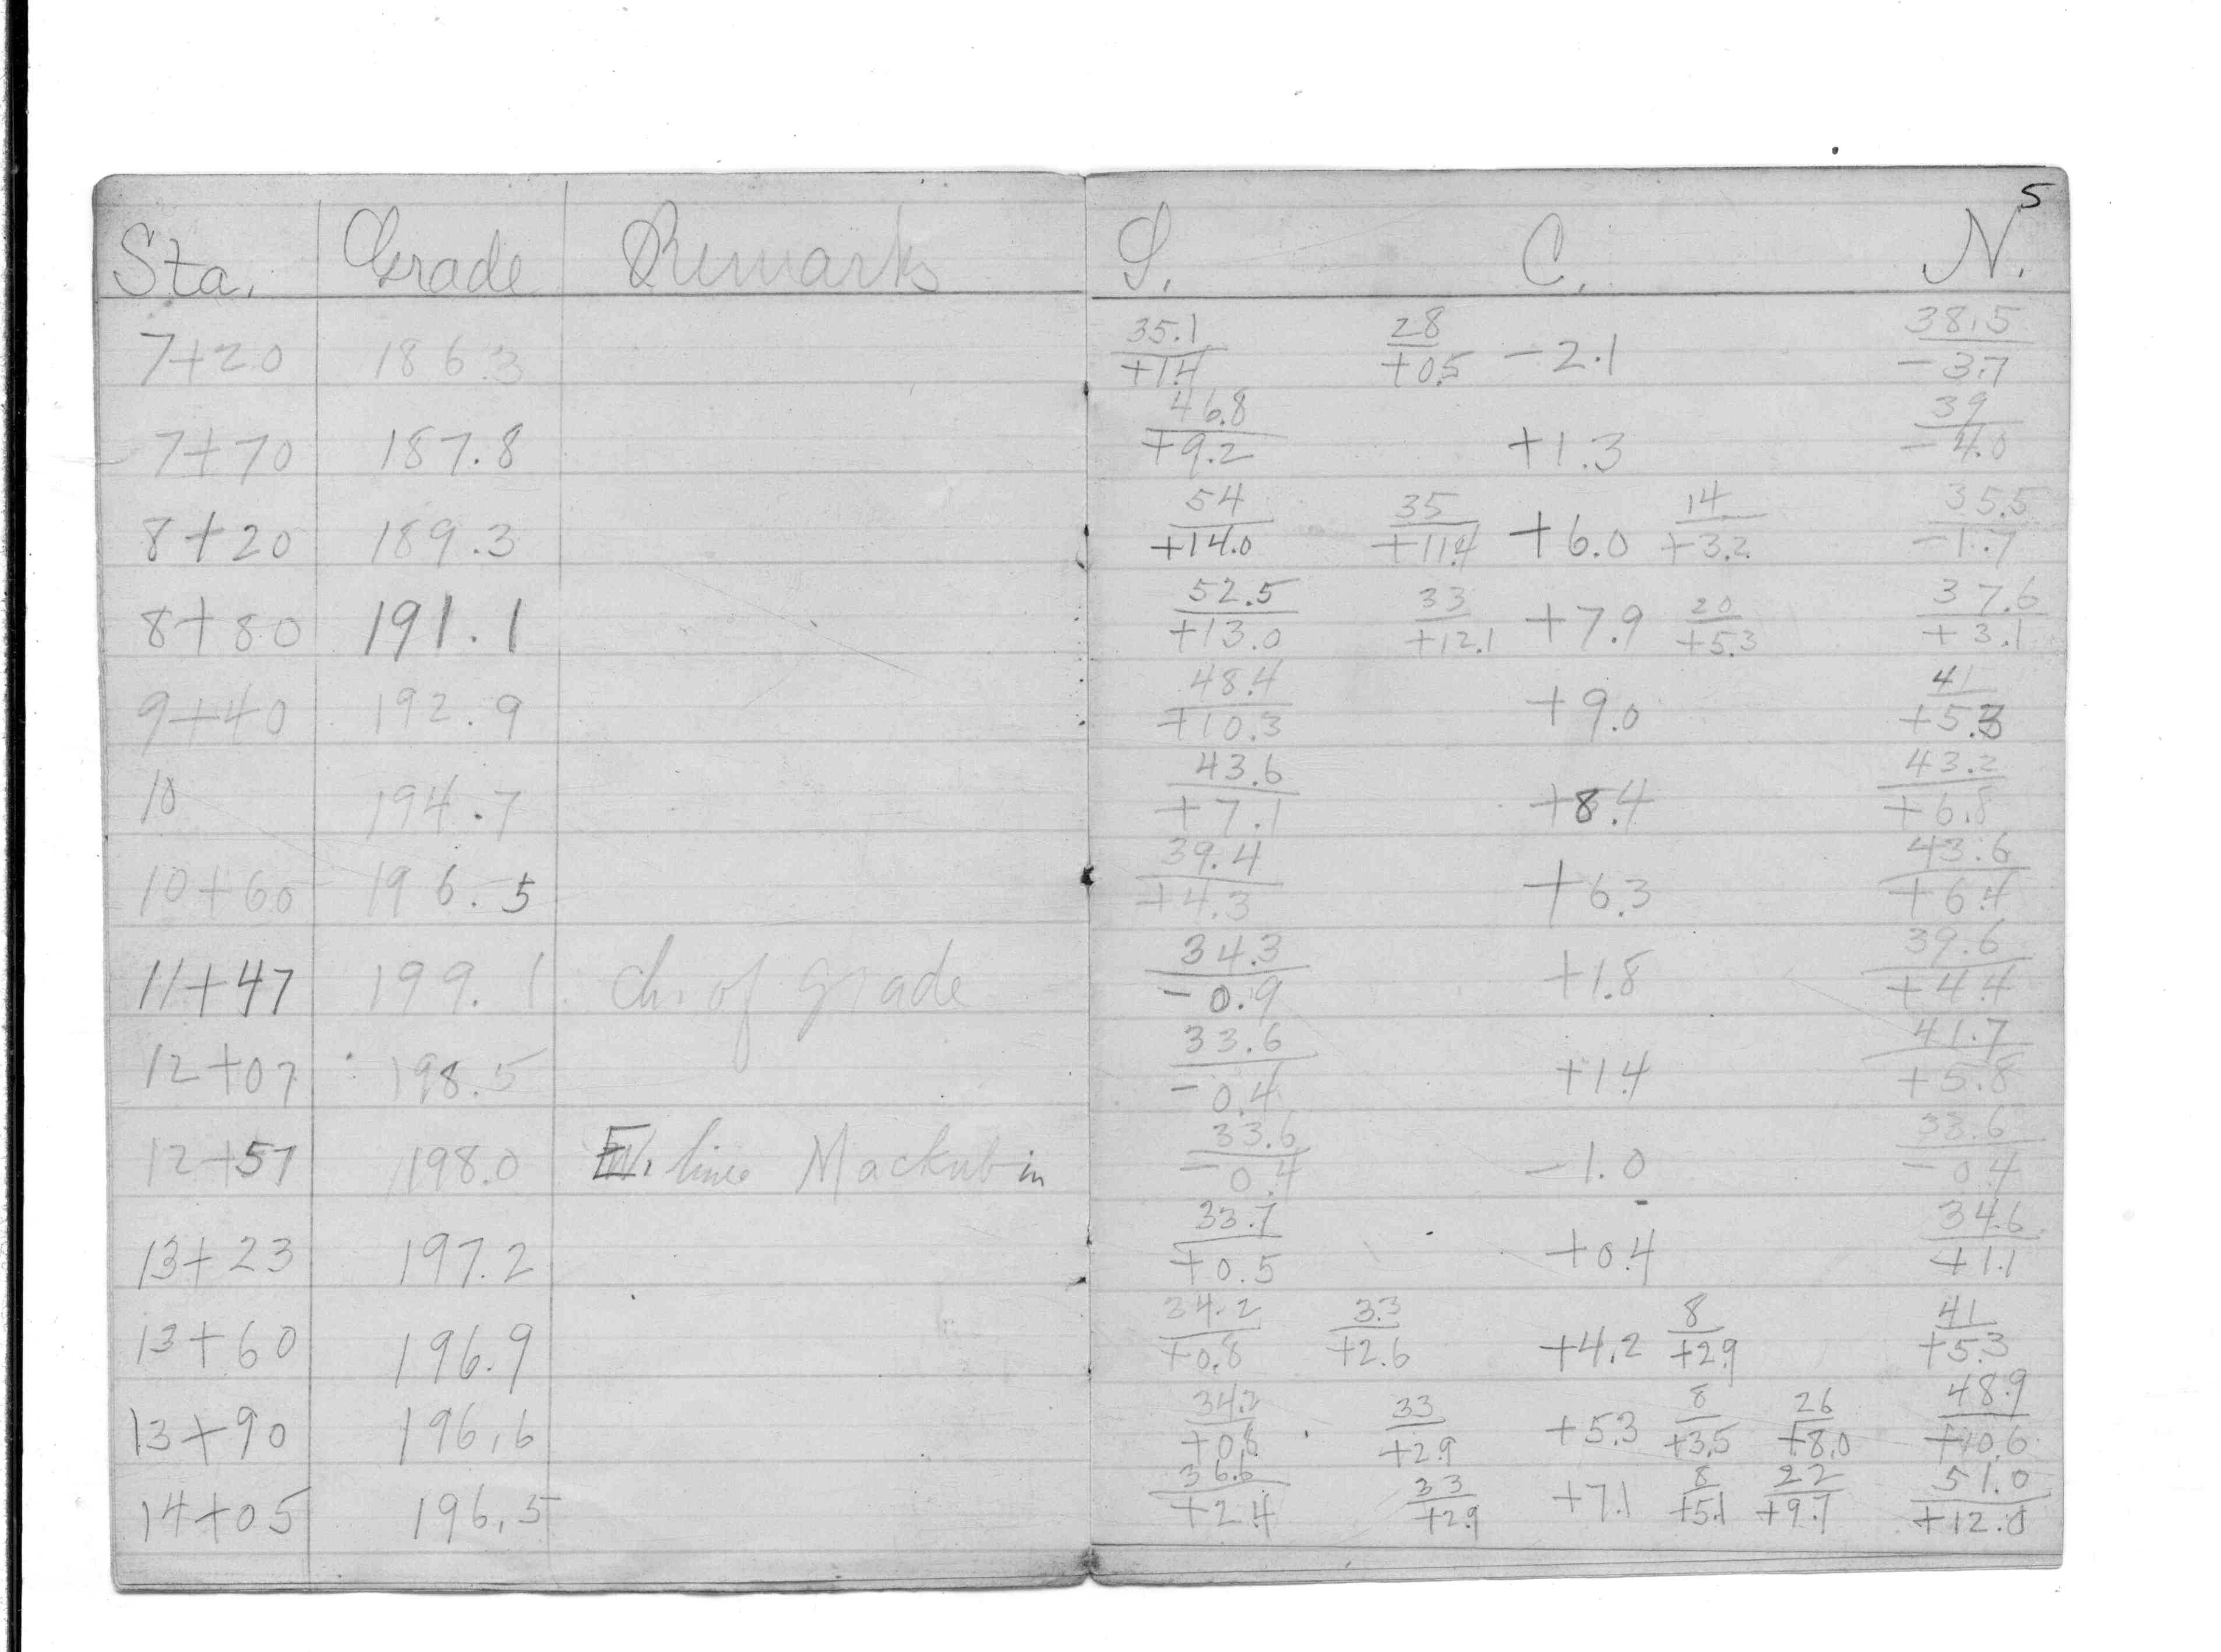 5
Sta. Grade Remarks S. C. N.
7+20 186.3 35.1/+1.4 28/+0.5 -2.1 38.5/-3.7
7+70 187.8 46.8/+9.2 +1.3 39/-4.0
8+20 189.3 54/+14.0 35/+11.4 +6.0 14/+3.2 35.5/-1.7
8+80 191.1 52.5/+13.0 33/+12.1 +7.9 20/+5.3 37.6/+3.1
9+40 192.9 48.4/+10.3 +9.0 41/+5.3
10 194.7 43.6/+7.1 +8.4 43.2/+6.8
10+60 196.5 39.4/+4.3 +6.3 43.6/+6.4
11+47 199.1 Ch. of grade 34.3/-0.9 +1.8 39.6/+4.4
12+07 198.5 33.6/-0.4 +1.4 41.7/+5.8
12+57 198.0 E. line Mackubin 33.6/-0.4 -1.0 33.6/-0.4
13+23 197.2 33.7/+0.5 +0.4 34.6/+1.1
13+60 196.9 34.2/+0.8 33/+2.6 +4.2 8/+2.9 41/+5.3
13+90 196.6 34.2/+0.8 33/+2.9 +5.3 8/+3.5 26/+8.0 48.9/+10.6
14+05 196.5 36.6/+2.4 33/+2.9 +7.1 8/+5.1 22/+9.7 51.0/+12.0